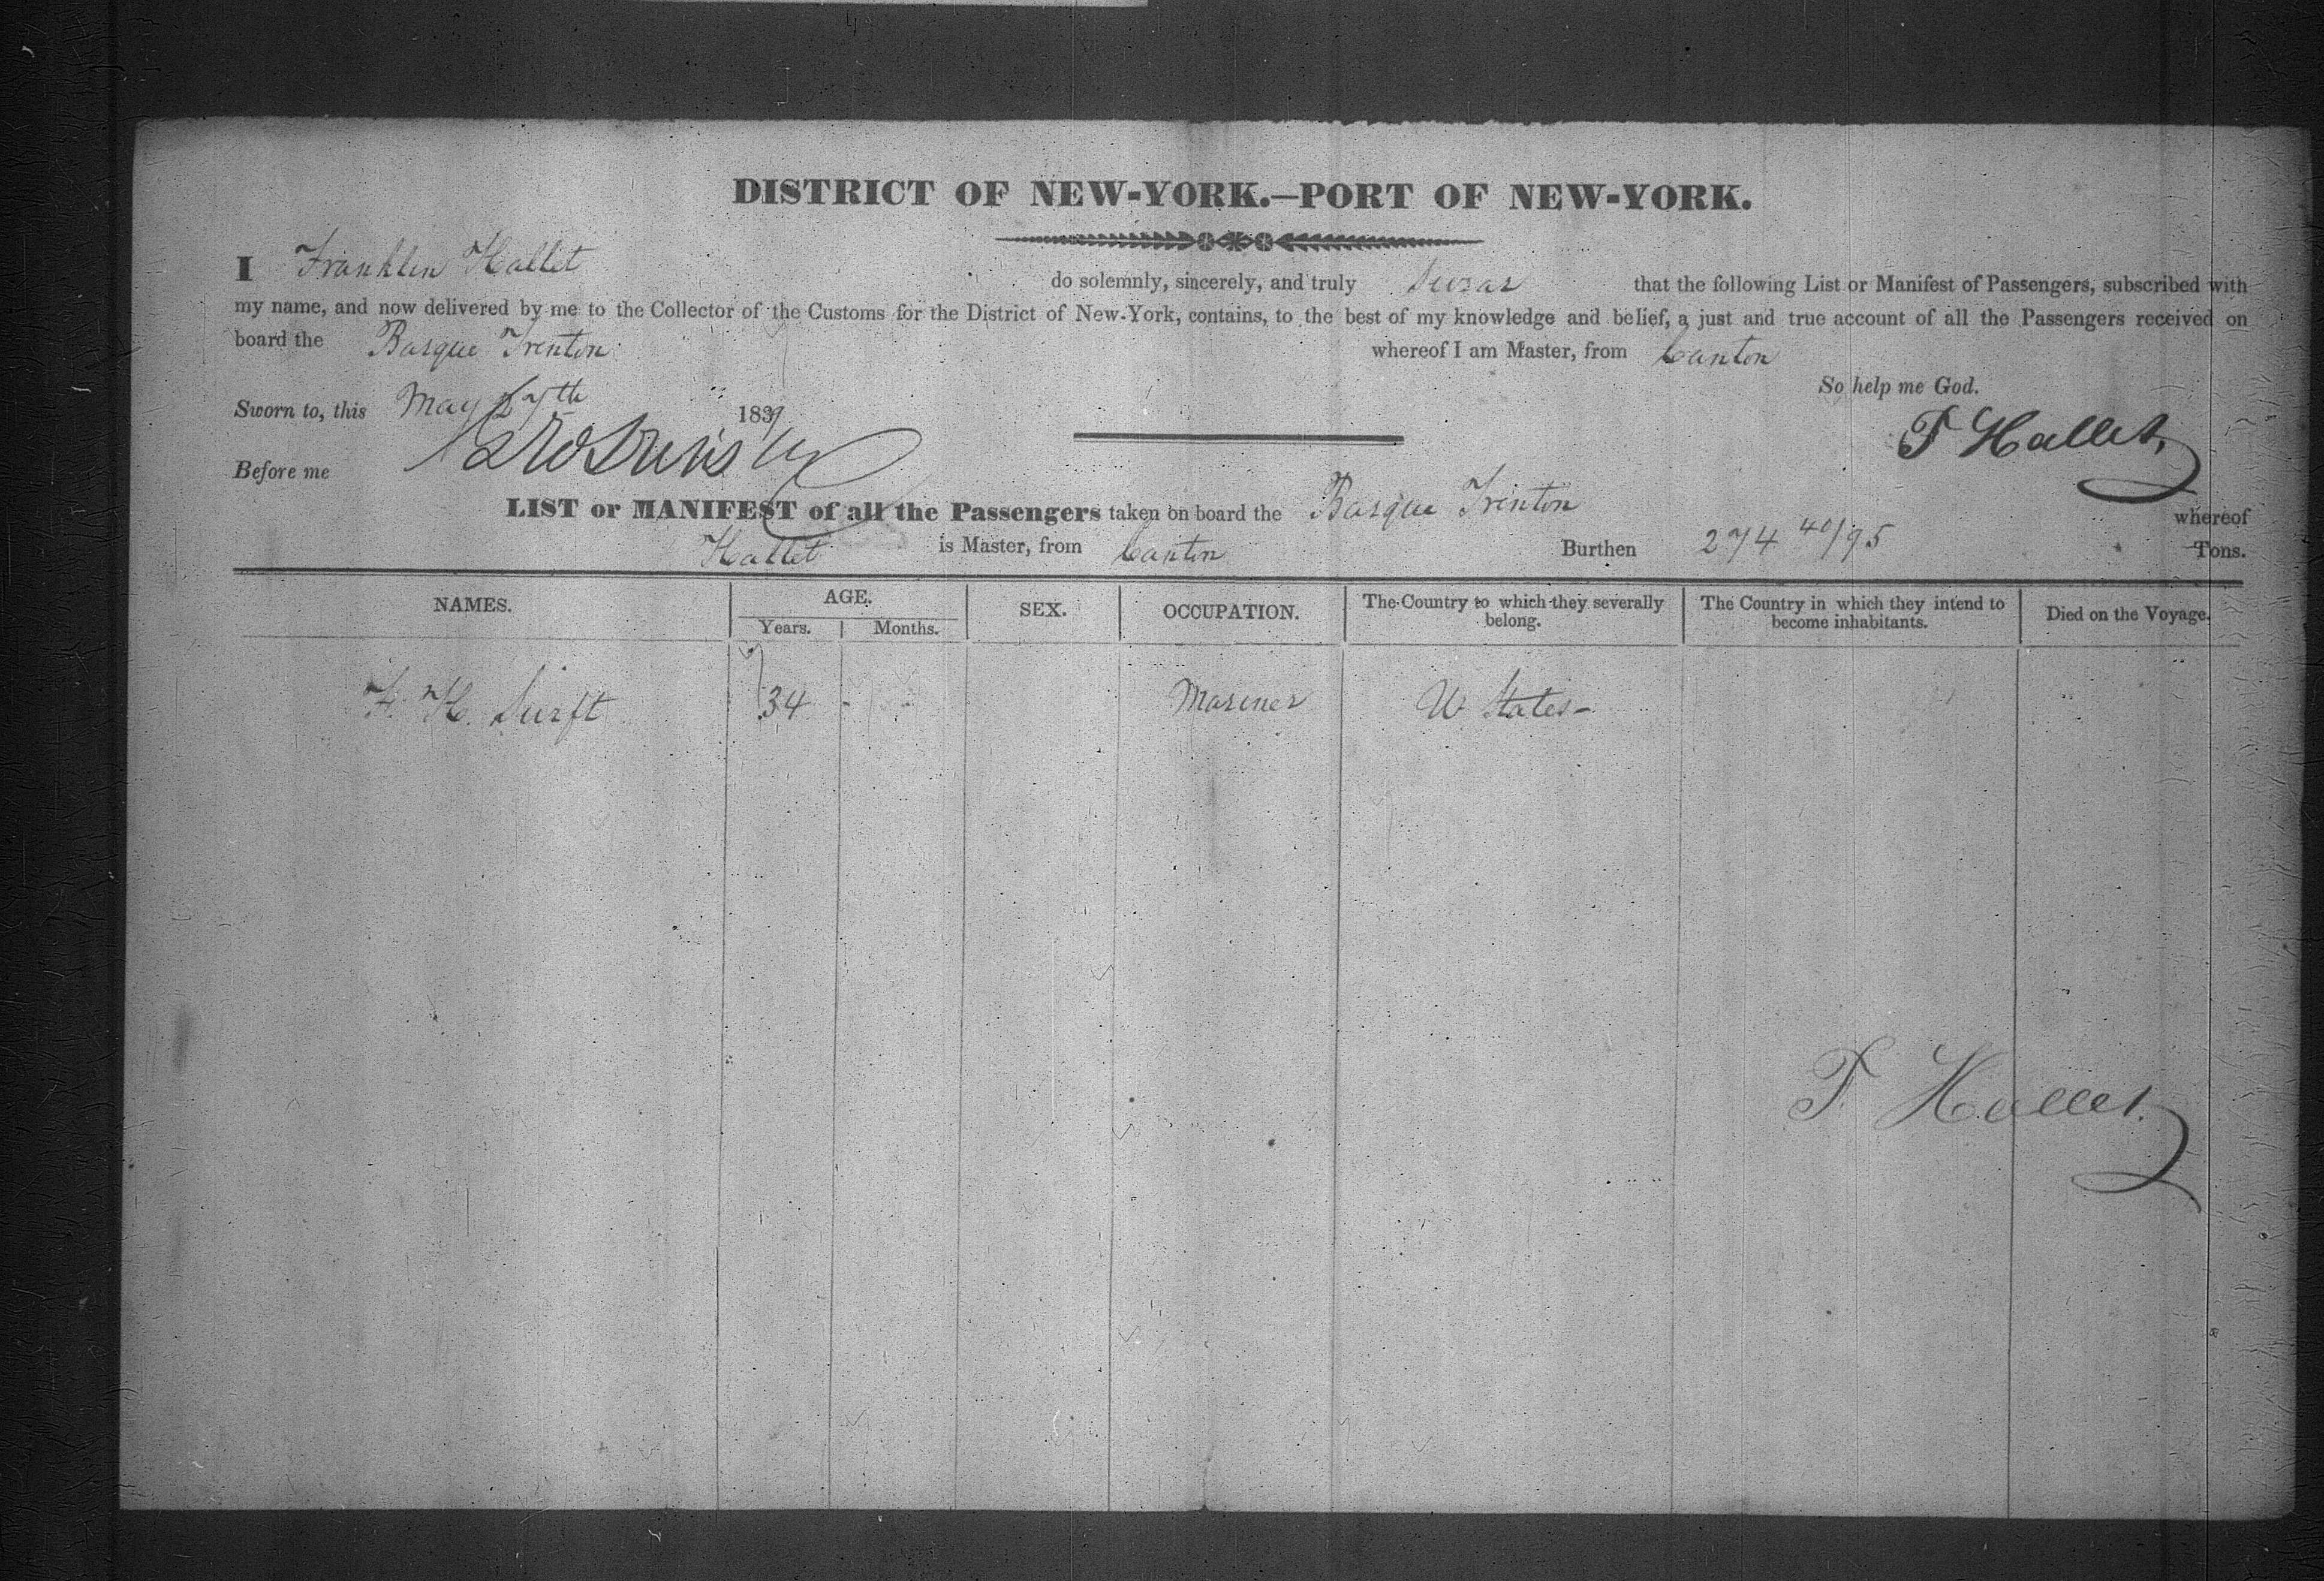 DISTRICT OF NEW-YORK.—PORT OF NEW-YORK.
I Franklin Hallet do solemnly, sincerely, and truly swear that the following List or Manifest of Passengers, subscribed with
my name, and now delivered by me to the Collector of the Customs for the District of New-York, contains, to the best of my knowledge and belief, a just and true account of all the Passengers received on
board the Barque Trenton whereof I am Master, from Canton
So help me God.
Sworn to, this May 27th 1837
F Hallet
Before me
LIST or MANIFEST of all the Passengers taken on board the Barque Trenton whereof
Hallet is Master, from Canton Burthen 274 40/95 Tons.
NAMES. AGE. SEX. OCCUPATION. The Country to which they severally belong. The Country in which they intend to become inhabitants. Died on the Voyage.
Years. Months.
F. H. Swift 34 - Mariner U States-
F. Hallet.